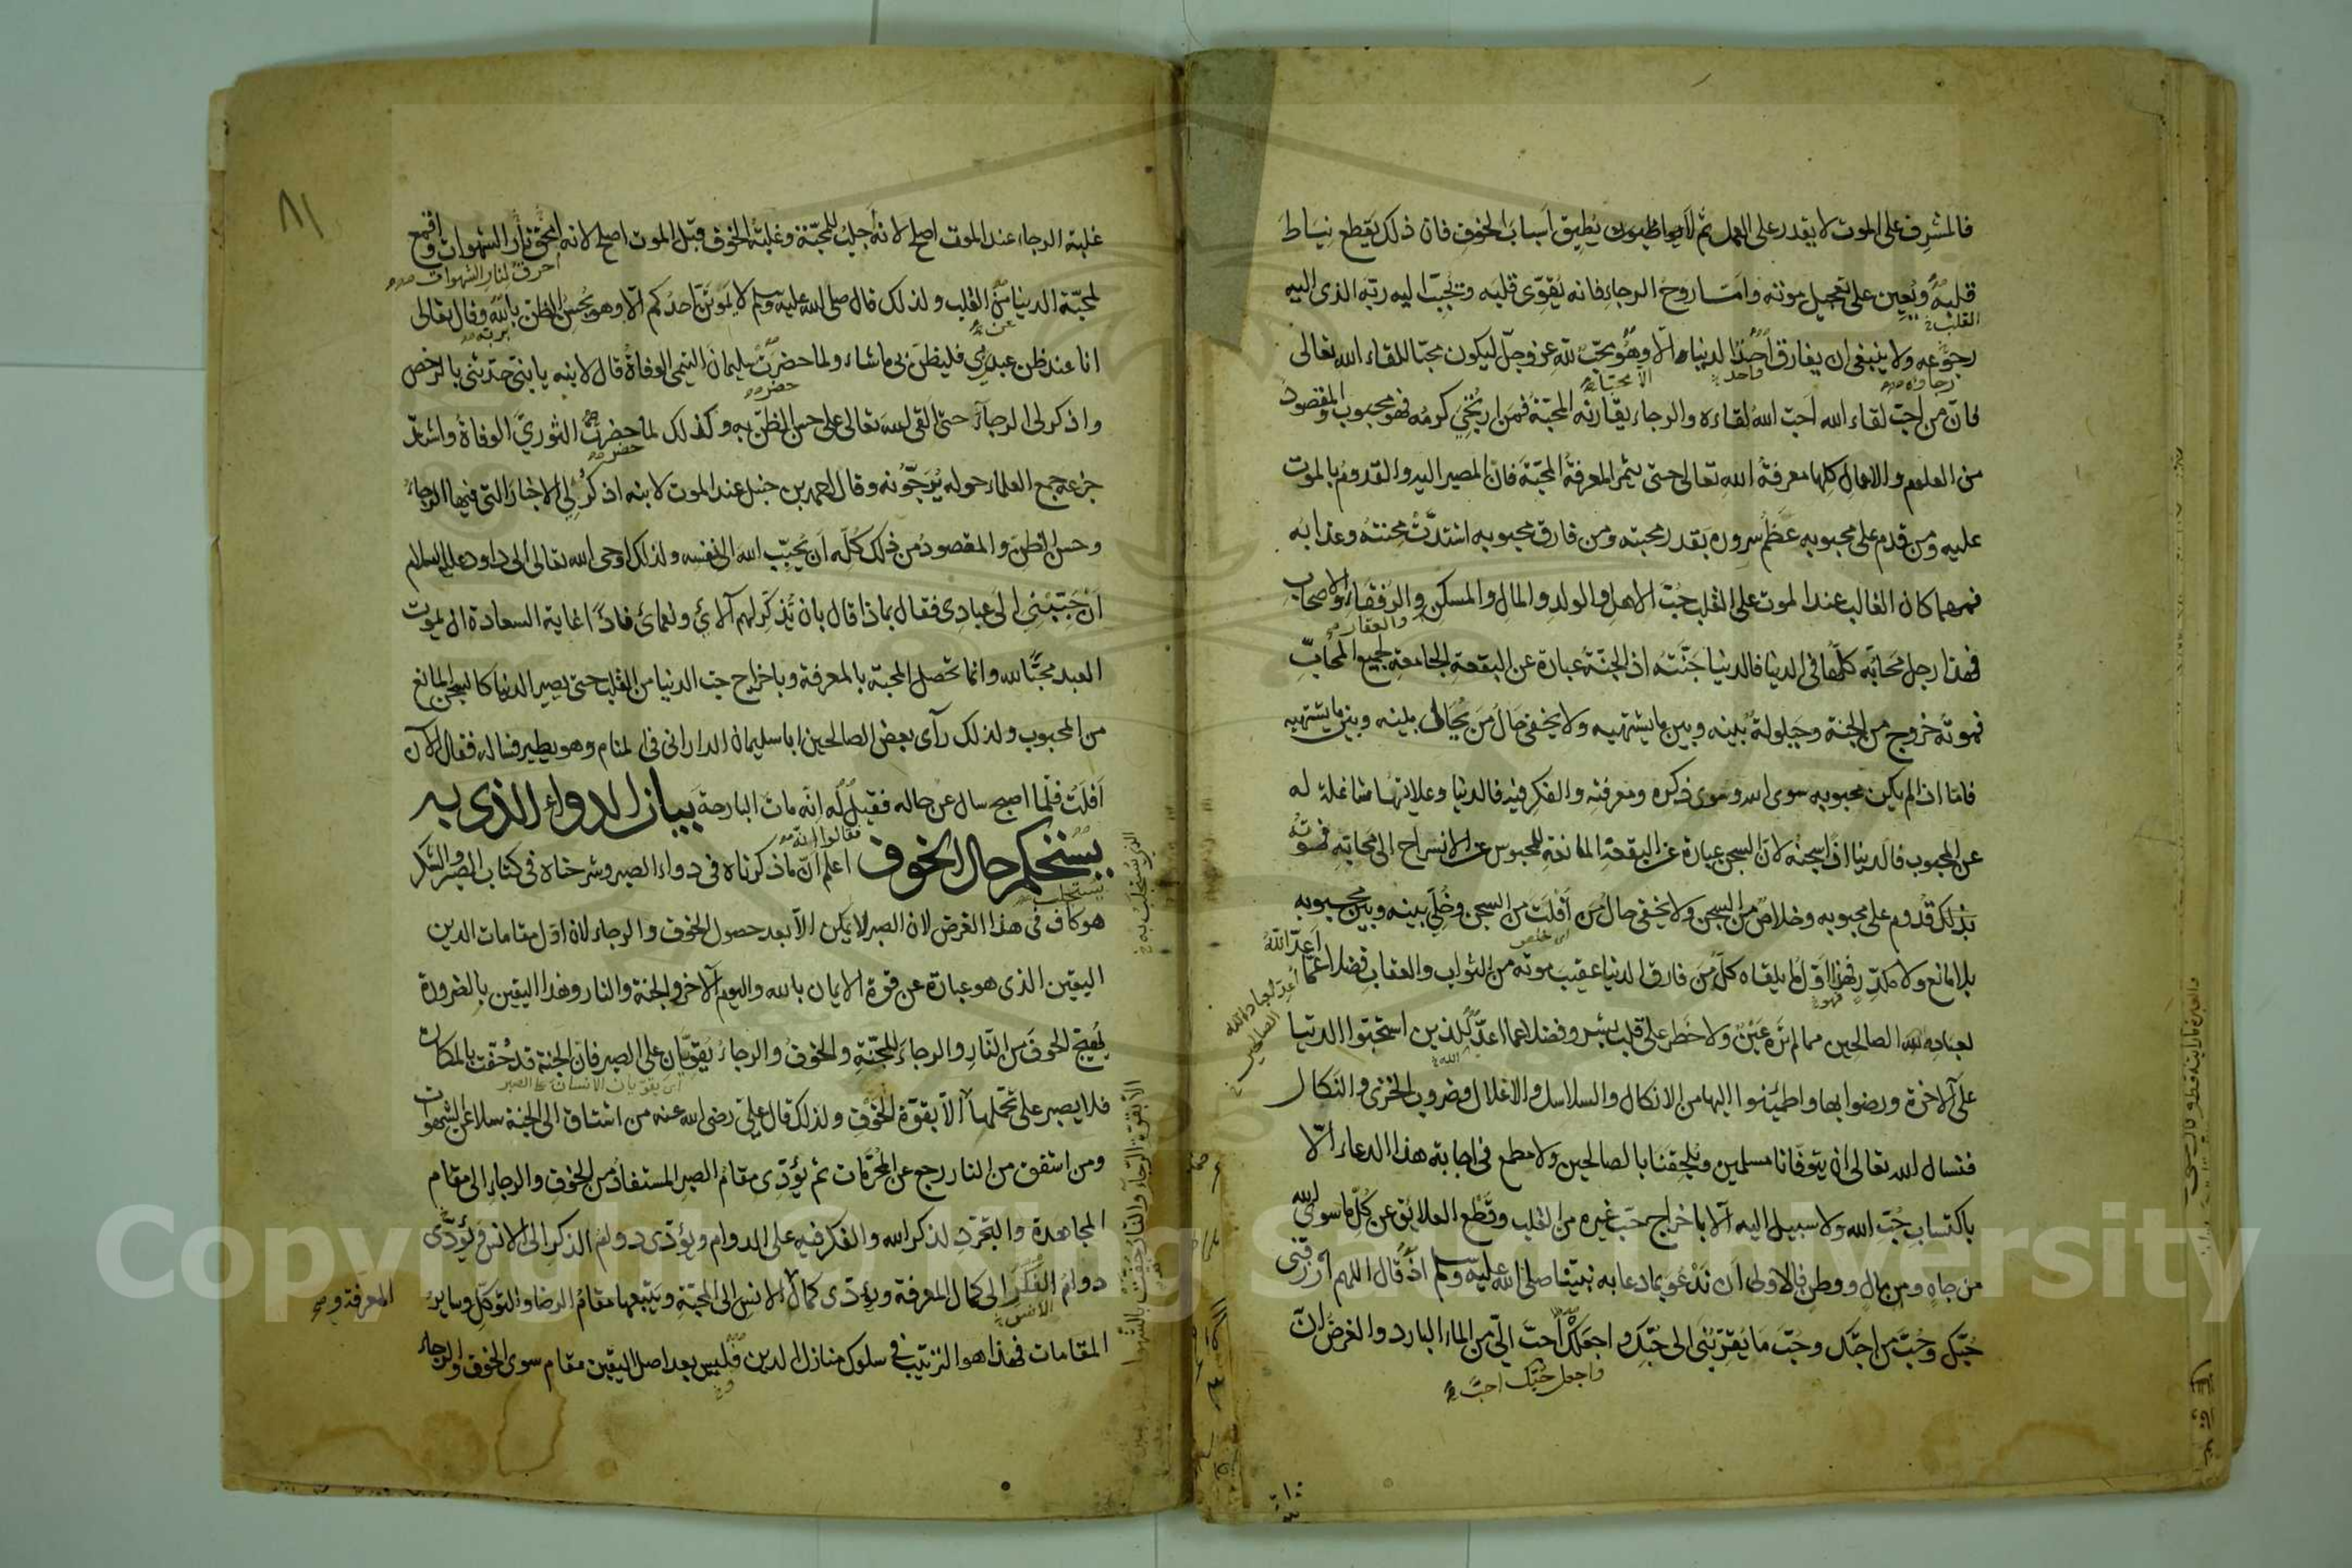 فالمشرف على الموت لا يقدر على العمل ثم لا يطيق أسباب الخوف فان ذلك يقطع نياط
قلبه ويعين على تعجيل موته وامّا روح الرجاء فانه يقوّى قلبه ويحبّب اليه ربّه الذى اليه
القلب
رجوعه ولا ينبغى ان يفارق احد الدنيا الّا وهو محبّ لله عز وجلّ ليكون محبّا للقاء الله تعالى
رجاؤه واحد الا محبّا
فانّ من احبّ لقاء الله احبّ الله لقاءه والرجاء يقارنه المحبّة فمن ارتجى كرمه فهو محبوب والمقصود
من العلوم والاعمال كلها معرفة الله تعالى حتى يثمر المعرفة المحبّة فان المصير اليه والقدوم بالموت
عليه ومن قدم على محبوبه عظم سروره بقدر محبته ومن فارق محبوبه اشتدّت محنته وعذابه
فمهما كان الغالب عند الموت على القلب حبّ الاهل والولد والمال والمسكن والرفقاء والاصحاب
والعقار
فهذا رجل محابّه كلّها فى الدنيا فالدنيا جنّته اذ الجنّة عبارة عن البقعة الجامعة لجميع المحابّ
فموته خروج من الجنة وحيلولة بينه وبين ما يشتهيه ولا يخفى حال من يحال بينه وبين ما يشتهيه
فامّا اذا لم يكن محبوبه سوى الله وسوى ذكره ومعرفته والفكر فيه فالدنيا وعلائقها شاغلة له
عن المحبوب فالدنيا اذًا سجنه لانّ السجن عبارة عن البقعة المانعة للمحبوس عن الانسراح الى محابّه فموته
بذلك قدوم على محبوبه وخلاص من السجن ولا يخفى حال من أفلت من السجن وخلّى بينه وبين محبوبه
اى خلص
بلا مانع ولا مكدّر فهذا اوّل ما يلقاه كلّ من فارق الدنيا عقيب موته من الثواب والعقاب فضلا عمّا اعدّ الله
فهو
اعد لعباد الله الصالحين
لعباده الصالحين مما لم تره عين ولا خطر على قلب بشر وفضلا عما اعدّ للذين استحبّوا الدنيا
الله
على الآخرة ورضوا بها واطمئنوا اليها من الانكال والسلاسل والاغلال وضروب الخزى والنكال
فنسال الله تعالى ان يتوفّانا مسلمين ويلحقنا بالصالحين ولا مطمع فى اجابة هذا الدعاء الّا
باكتساب حبّ الله ولا سبيل اليه الّا باخراج حبّ غيره من القلب وقطع العلائق عن كلّ ما سوى الله
من جاه ومن مال ووطن فالاولى ان ندعو بما دعا به نبيّنا صلى الله عليه وسلم اذ قال اللهم ارزقنى
حبّك وحبّ من احبّك وحبّ ما يقرّبنى الى حبّك واجعلك احبّ الىّ من الماء البارد والغرض انّ
واجعل حبّك احبّ
٨١
غلبة الرجاء عند الموت اصلح لانه أجلب للمحبّة وغلبة الخوف قبل الموت اصلح لانه احرق نار الشهوات واقمع
احرق لنار الشهوات
لمحبّة الدنيا من القلب ولذلك قال صلى الله عليه وسلم لا يموتنّ احدكم الّا وهو يحسن الظنّ بالله وقال تعالى
عن بربّه
انا عند ظن عبدى بى فليظن بى ما شاء ولما حضرت سليمان التيمى الوفاة قال لابنه يا بنىّ حدّثنى بالرخص
حضر
واذكر لى الرجاء حتى ألقى الله تعالى على حسن الظنّ به وكذلك لما حضرت الثورىّ الوفاة واشتدّ
حضر
جزعه جمع العلماء حوله يرجّونه وقال احمد بن حنبل عند الموت لابنه اذكر لى الاخبار التى فيها الرجاء
وحسن الظنّ والمقصود من ذلك كلّه ان يحبّب الله الى نفسه ولذلك اوحى الله تعالى الى داود عليه السلام
ان حبّبنى الى عبادى فقال بماذا قال بان تذكّر لهم آلائى ونعمائى فاذًا غاية السعادة ان يموت
العبد محبّا لله وانما تحصل المحبة بالمعرفة وباخراج حبّ الدنيا من القلب حتى يصير الدنيا كالسجن المانع
من المحبوب ولذلك رأى بعض الصالحين ابا سليمان الدارانى فى المنام وهو يطير فساله فقال الآن
أفلت فلما اصبح سال عن حاله فقيل له انّه مات البارحة بيان الدواء الذى به
فقالوا انه
يستحكم حال الخوف اعلم انّ ما ذكرناه فى دواء الصبر وشرحناه فى كتاب الصبر والشكر
يستجلب
هو كاف فى هذا الغرض لان الصبر لا يمكن الّا بعد حصول الخوف والرجاء لان اوّل مقامات الدين
اليقين الذى هو عبارة عن قوة الايمان بالله واليوم الآخر والجنة والنار وهذا اليقين بالضرورة
يهيج الخوف من النار والرجاء للجنّة والخوف والرجاء يقوّيان على الصبر فان الجنة قد حفّت بالمكاره
اى يقويان الانسان على الصبر
فلا يصبر على تحملها الّا بقوّة الخوف ولذلك قال علىّ رضى الله عنه من اشتاق الى الجنة سلا عن الشهوات
ومن اشفق من النار رجع عن المحرّمات ثم يؤدّى مقام الصبر المستفاد من الخوف والرجاء الى مقام
المجاهدة والتجرّد لذكر الله والفكر فيه على الدوام ويؤدّى دوام الذكر الى الانس ويؤدّى
دوام الفكر الى كمال المعرفة ويؤدّى كمال الانس الى المحبّة ويتبعها مقام الرضا والتوكّل وساير
المعرفة و الانس
المقامات فهذا هو الترتيب فى سلوك منازل الدين فليس بعد اصل اليقين مقام سوى الخوف والرجاء
Copyright © King Saud University